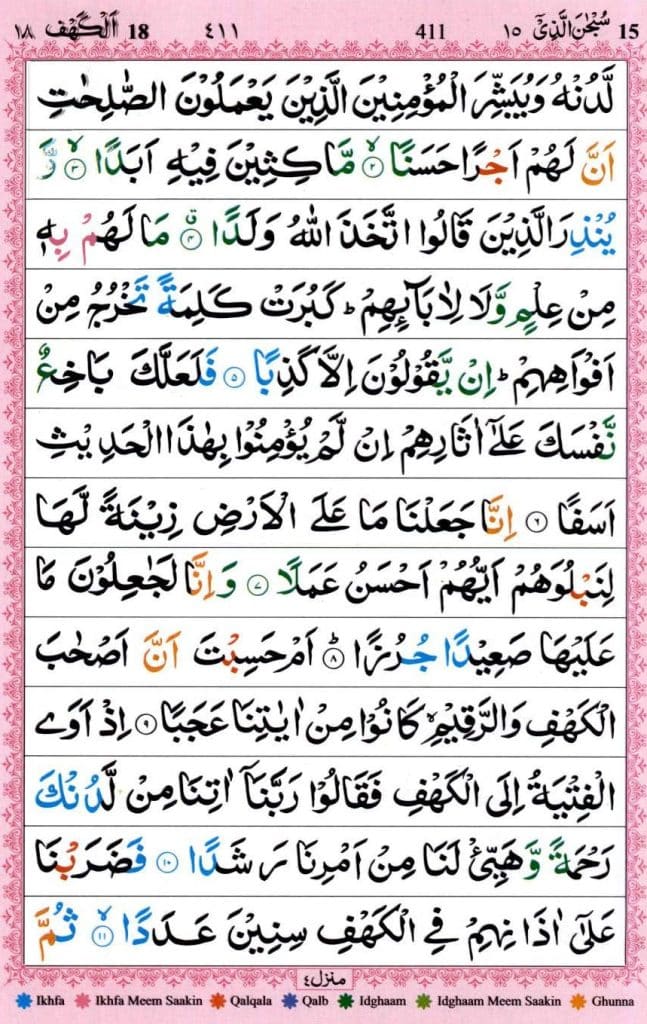 15 سُبْحٰنَ الَّذِیْۤ ١٥ 411 ٤١١ 18 اَلْكَهْف ١٨
لَّدُنْهُ وَیُبَشِّرَ الْمُؤْمِنِیْنَ الَّذِیْنَ یَعْمَلُوْنَ الصّٰلِحٰتِ
اَنَّ لَهُمْ اَجْرًا حَسَنًاۙ ۝٢ مَّاكِثِیْنَ فِیْهِ اَبَدًاۙ ۝٣ وَّ
یُنْذِرَ الَّذِیْنَ قَالُوا اتَّخَذَ اللّٰهُ وَلَدًاۗ ۝٤ مَا لَهُمْ بِهٖ
مِنْ عِلْمٍ وَّلَا لِاٰبَآىِٕهِمْؕ كَبُرَتْ كَلِمَةً تَخْرُجُ مِنْ
اَفْوَاهِهِمْؕ اِنْ یَّقُوْلُوْنَ اِلَّا كَذِبًا ۝٥ فَلَعَلَّكَ بَاخِعٌ
نَّفْسَكَ عَلٰۤى اٰثَارِهِمْ اِنْ لَّمْ یُؤْمِنُوْا بِهٰذَا الْحَدِیْثِ
اَسَفًا ۝٦ اِنَّا جَعَلْنَا مَا عَلَى الْاَرْضِ زِیْنَةً لَّهَا
لِنَبْلُوَهُمْ اَیُّهُمْ اَحْسَنُ عَمَلًا ۝٧ وَ اِنَّا لَجٰعِلُوْنَ مَا
عَلَیْهَا صَعِیْدًا جُرُزًاؕ ۝٨ اَمْ حَسِبْتَ اَنَّ اَصْحٰبَ
الْكَهْفِ وَالرَّقِیْمِۙ كَانُوْا مِنْ اٰیٰتِنَا عَجَبًا ۝٩ اِذْ اَوَى
الْفِتْیَةُ اِلَى الْكَهْفِ فَقَالُوْا رَبَّنَاۤ اٰتِنَا مِنْ لَّدُنْكَ
رَحْمَةً وَّ هَیِّئْ لَنَا مِنْ اَمْرِنَا رَشَدًا ۝١٠ فَضَرَبْنَا
عَلٰۤى اٰذَانِهِمْ فِی الْكَهْفِ سِنِیْنَ عَدَدًاۙ ۝١١ ثُمَّ
منزل ٤
Ikhfa Ikhfa Meem Saakin Qalqala Qalb Idghaam Idghaam Meem Saakin Ghunna